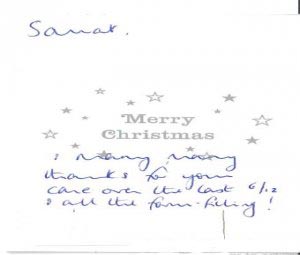 Sanat.
Merry
Christmas
& many many
thanks for your
care over the last 6/12
& all the form-filling!